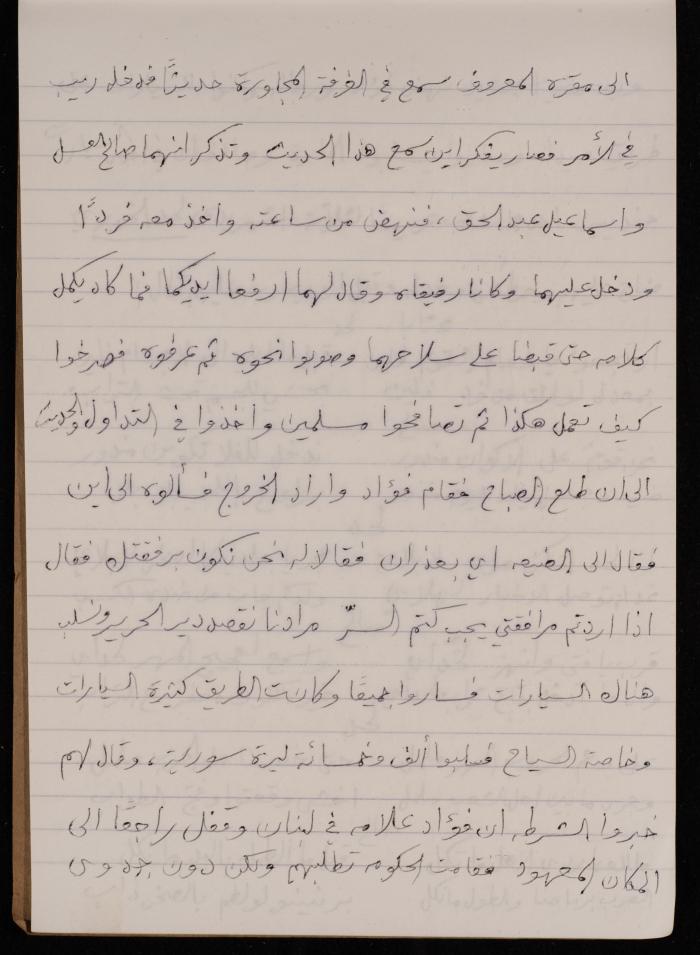 الى مقره المعروف سمع في الغرفة المجاورة حديثًا فدخله ريب
في الأمر فصار يفكر اين سمع هذا الحديث وتذكر انهما صالح العسل
واسماعيل عبد الحق، فنهض من ساعته واخذ معه فردًا
ودخل عليهما وكانا رفيقاه وقال لهما ارفعا ايديكما فما كاد يكمل
كلامه حتى قبضا على سلاحهما وصوبوا نحوه ثم عرفوه فصرخوا
كيف تعمل هكذا ثم تصافحوا مسلمين واخذوا في التداول والحديث
الى ان طلع الصباح فقام فؤاد واراد الخروج فسألوه الى اين
فقال الى الضيعه اي بعذران فقالا له نحن نكون برفقتك فقال
اذا اردتم مرافقتي يجب كتم السرّ مرادنا نقصد دير الحرير ونسلب
هناك السيارات فساروا جميعًا وكانت الطريق كثيرة السيارات
وخاصة السياح فسلبوا ألف وخمسائة ليرة سورية، وقال لهم
خبروا الشرطه ان فؤاد علامه في لبنان وقفل راجعًا الى
المكان المعهود فقامت الحكومه تطلبهم ولكن دون جدوى